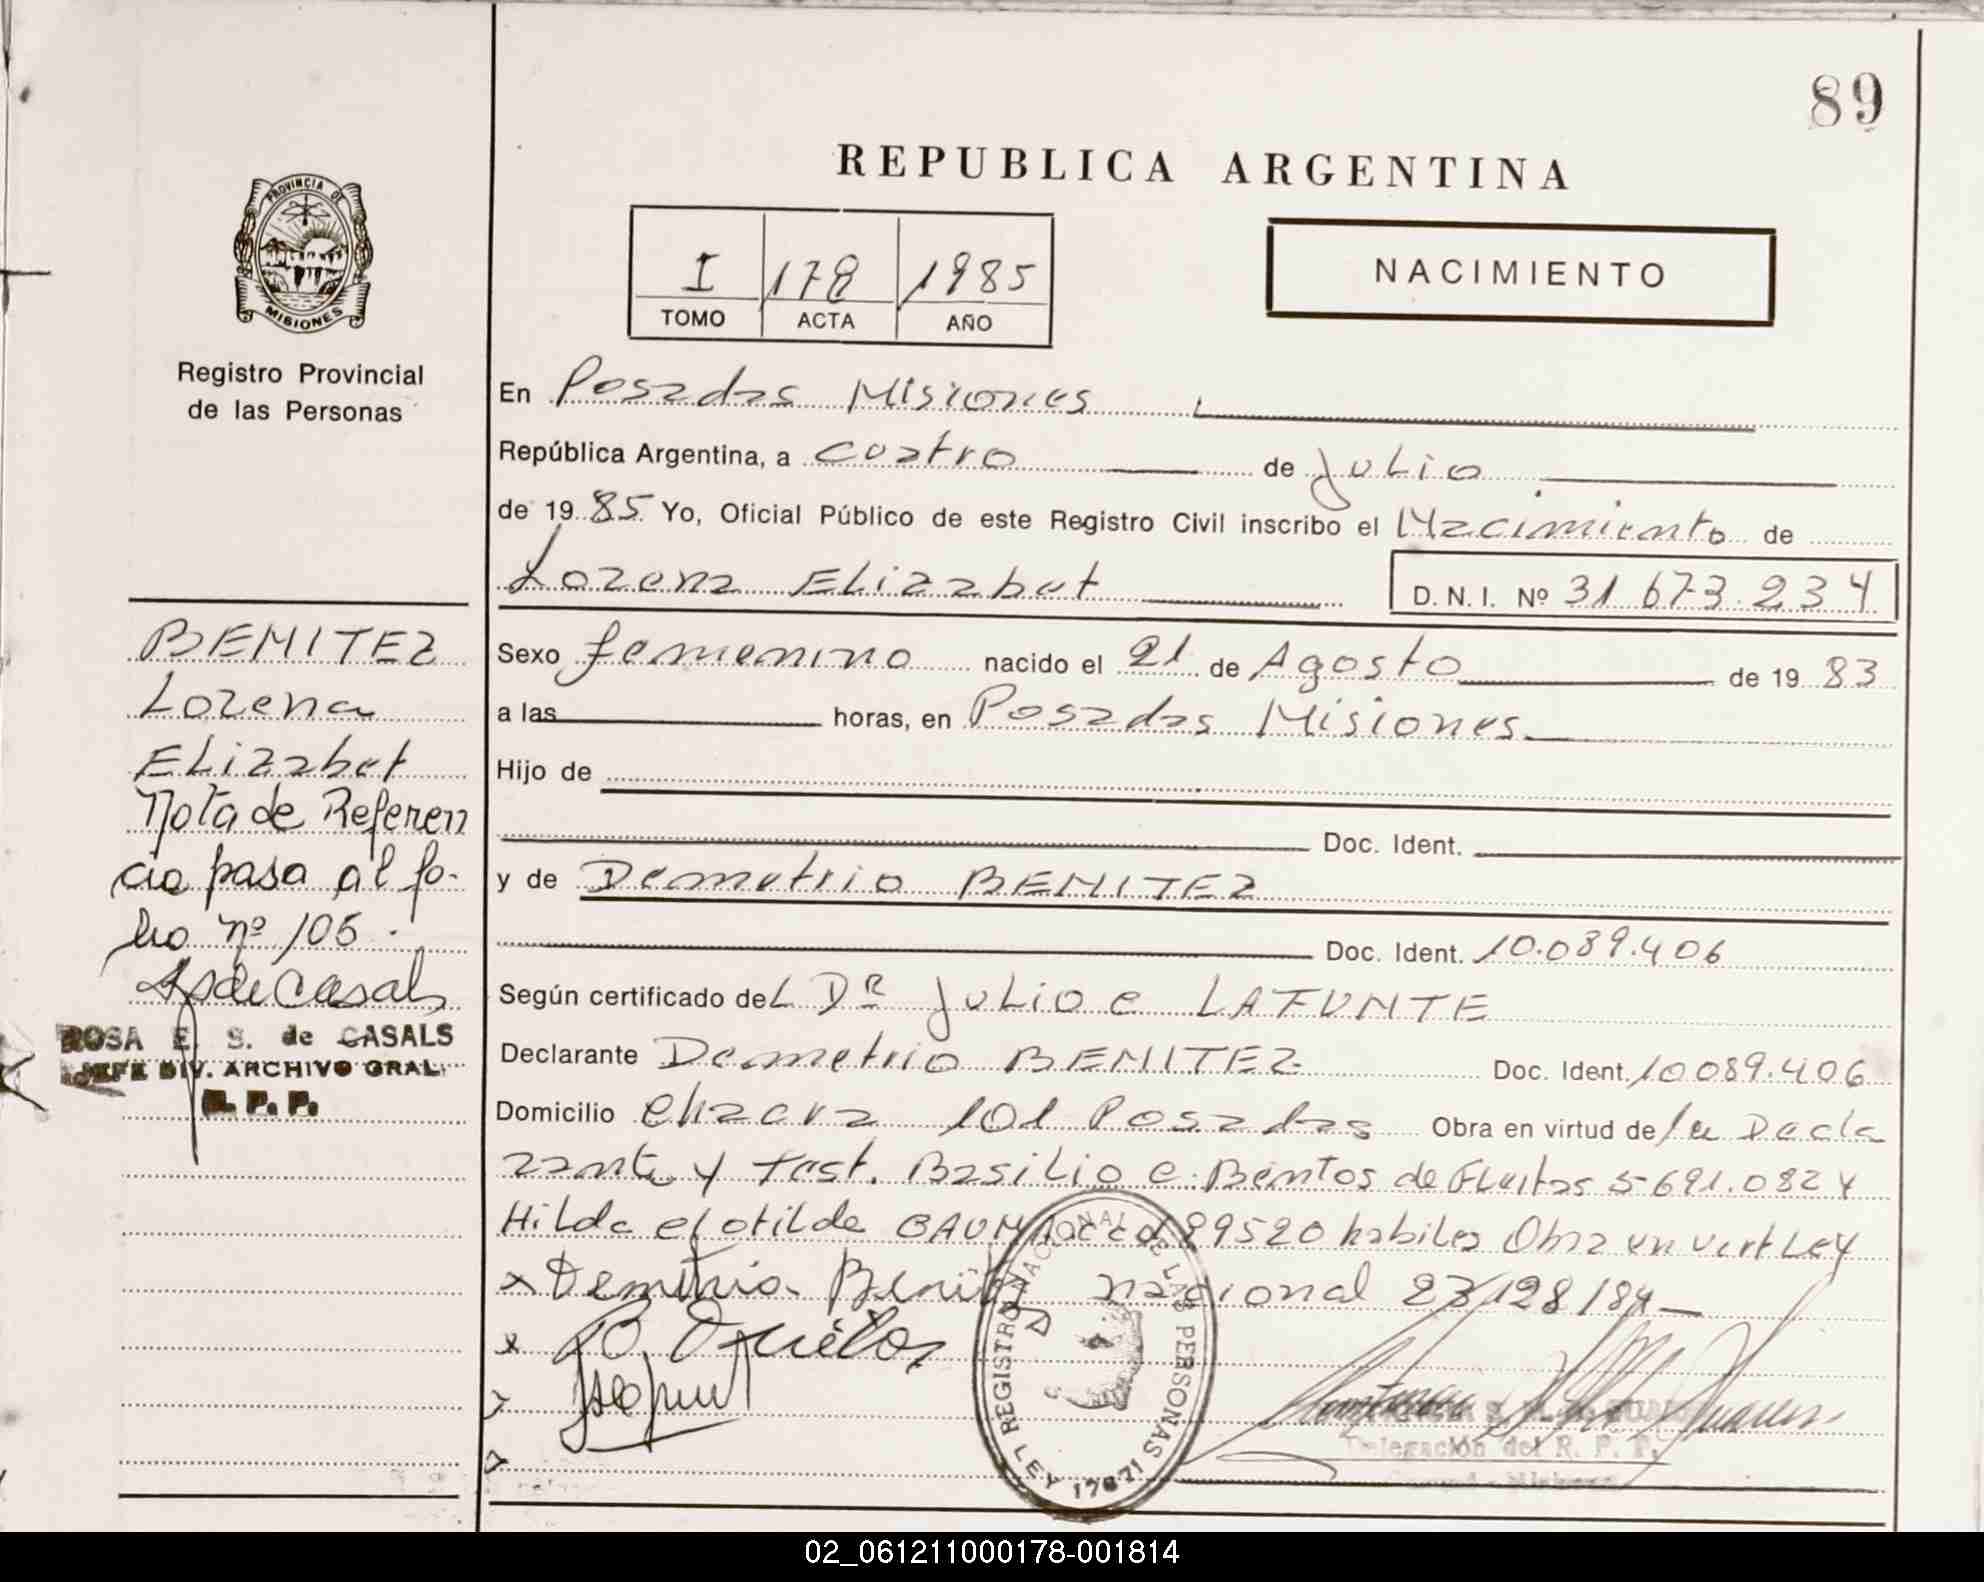 89
REPUBLICA ARGENTINA
PROVINCIA DE
MISIONES
Registro Provincial
de las Personas
I 178 1985
TOMO ACTA AÑO
NACIMIENTO
En Posadas Misiones
República Argentina, a cuatro de Julio
de 1985 Yo, Oficial Público de este Registro Civil inscribo el Nacimiento de
Lorena Elizabet D.N.I. Nº 31 673.234
Sexo femenino nacido el 21 de Agosto de 1983
a las horas, en Posadas Misiones
Hijo de
Doc. Ident.
y de Demetrio BENITEZ
Doc. Ident. 10.089.406
Según certificado del Dr Julio e LAFUNTE
Declarante Demetrio BENITEZ Doc. Ident. 10089.406
Domicilio chacra 101 Posadas Obra en virtud de la Decla
rante y Test. Basilio e. Bentos de Fleitas 5-691.082 y
Hilda clotilde habiles Obra en virt Ley
x Demetrio Benitez nacional 23/128/84
x
REGISTRO NACIONAL DE LAS PERSONAS
LEY 17671
Delegación del R. P. P.
BENITEZ
Lorena
Elizabet
Nota de Referen
cia pasa al fo-
lio nº 105.
ROSA E. S. de CASALS
JEFE DIV. ARCHIVO GRAL.
R. P. P.
02_061211000178-001814